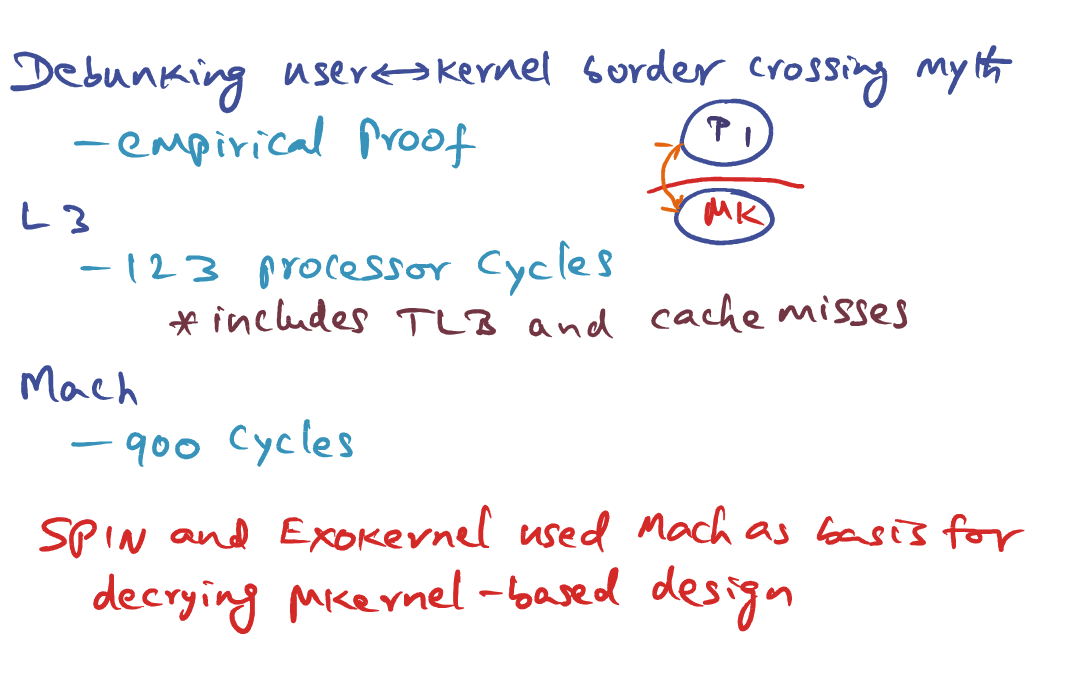 Debunking user↔kernel border crossing myth
- empirical proof
P1
μK
L3
- 123 processor cycles
* includes TLB and cache misses
Mach
- 900 cycles
SPIN and Exokernel used Mach as basis for
decrying μKernel-based design